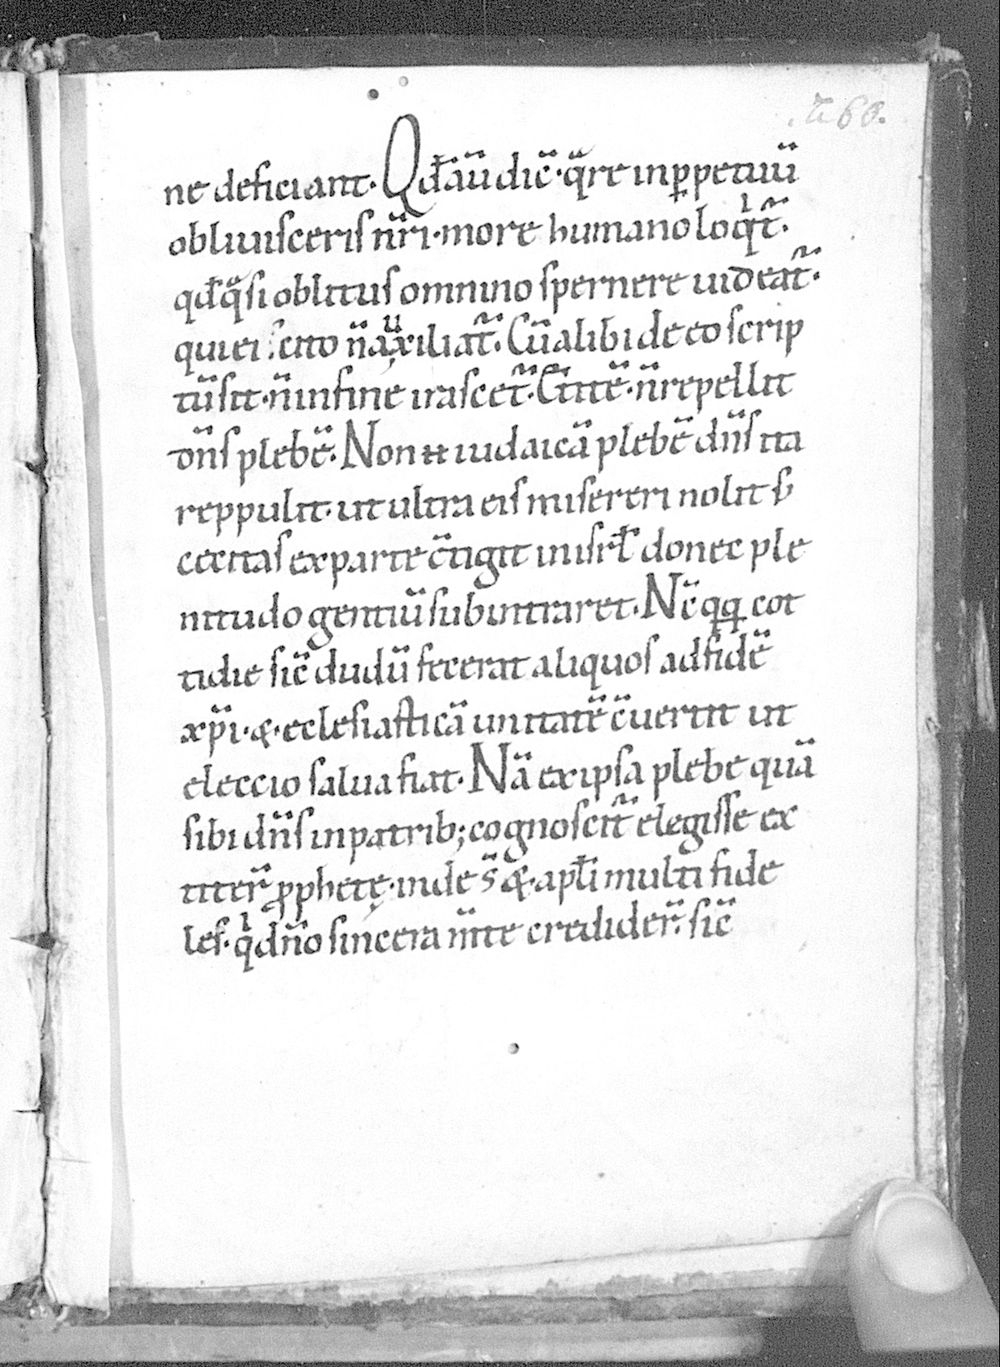 60.
ne deficiant· Qđ aũ dic̃· q̃re inꝑpetuũ
obliuisceris nr̃i· more humano loqⁱt̃·
qđ q̃si oblitus omnino spernere uideat̃·
qui ei cito ñ auxiliat̃· Cũ alibi de eo scrip
tũ sit· ñ in fine irascet̃· Et itẽ· ñ repellit
dñs plebẽ· Non ÷ iudaicã plebẽ dñs ita
reppulit· ut ultra eis misereri nolit s̵
cecitas ex parte c̃tigit in isrł donec ple
nitudo gentiũ subintraret· Nc̃ qq cot
tidie sic̃ dudũ fecerat aliquos ad fidẽ
xp̃i· &· eclesiasticã unitatẽ c̃uertit ut
eleccio salua fiat· Nã ex ipsa plebe quã
sibi dñs in patrib; cognoscit̃ elegisse ex
titer̃ ꝓphetę· inde s̃ &· apłi multi fide
les· qⁱ dño sincera m̃te credider̃· sic̃